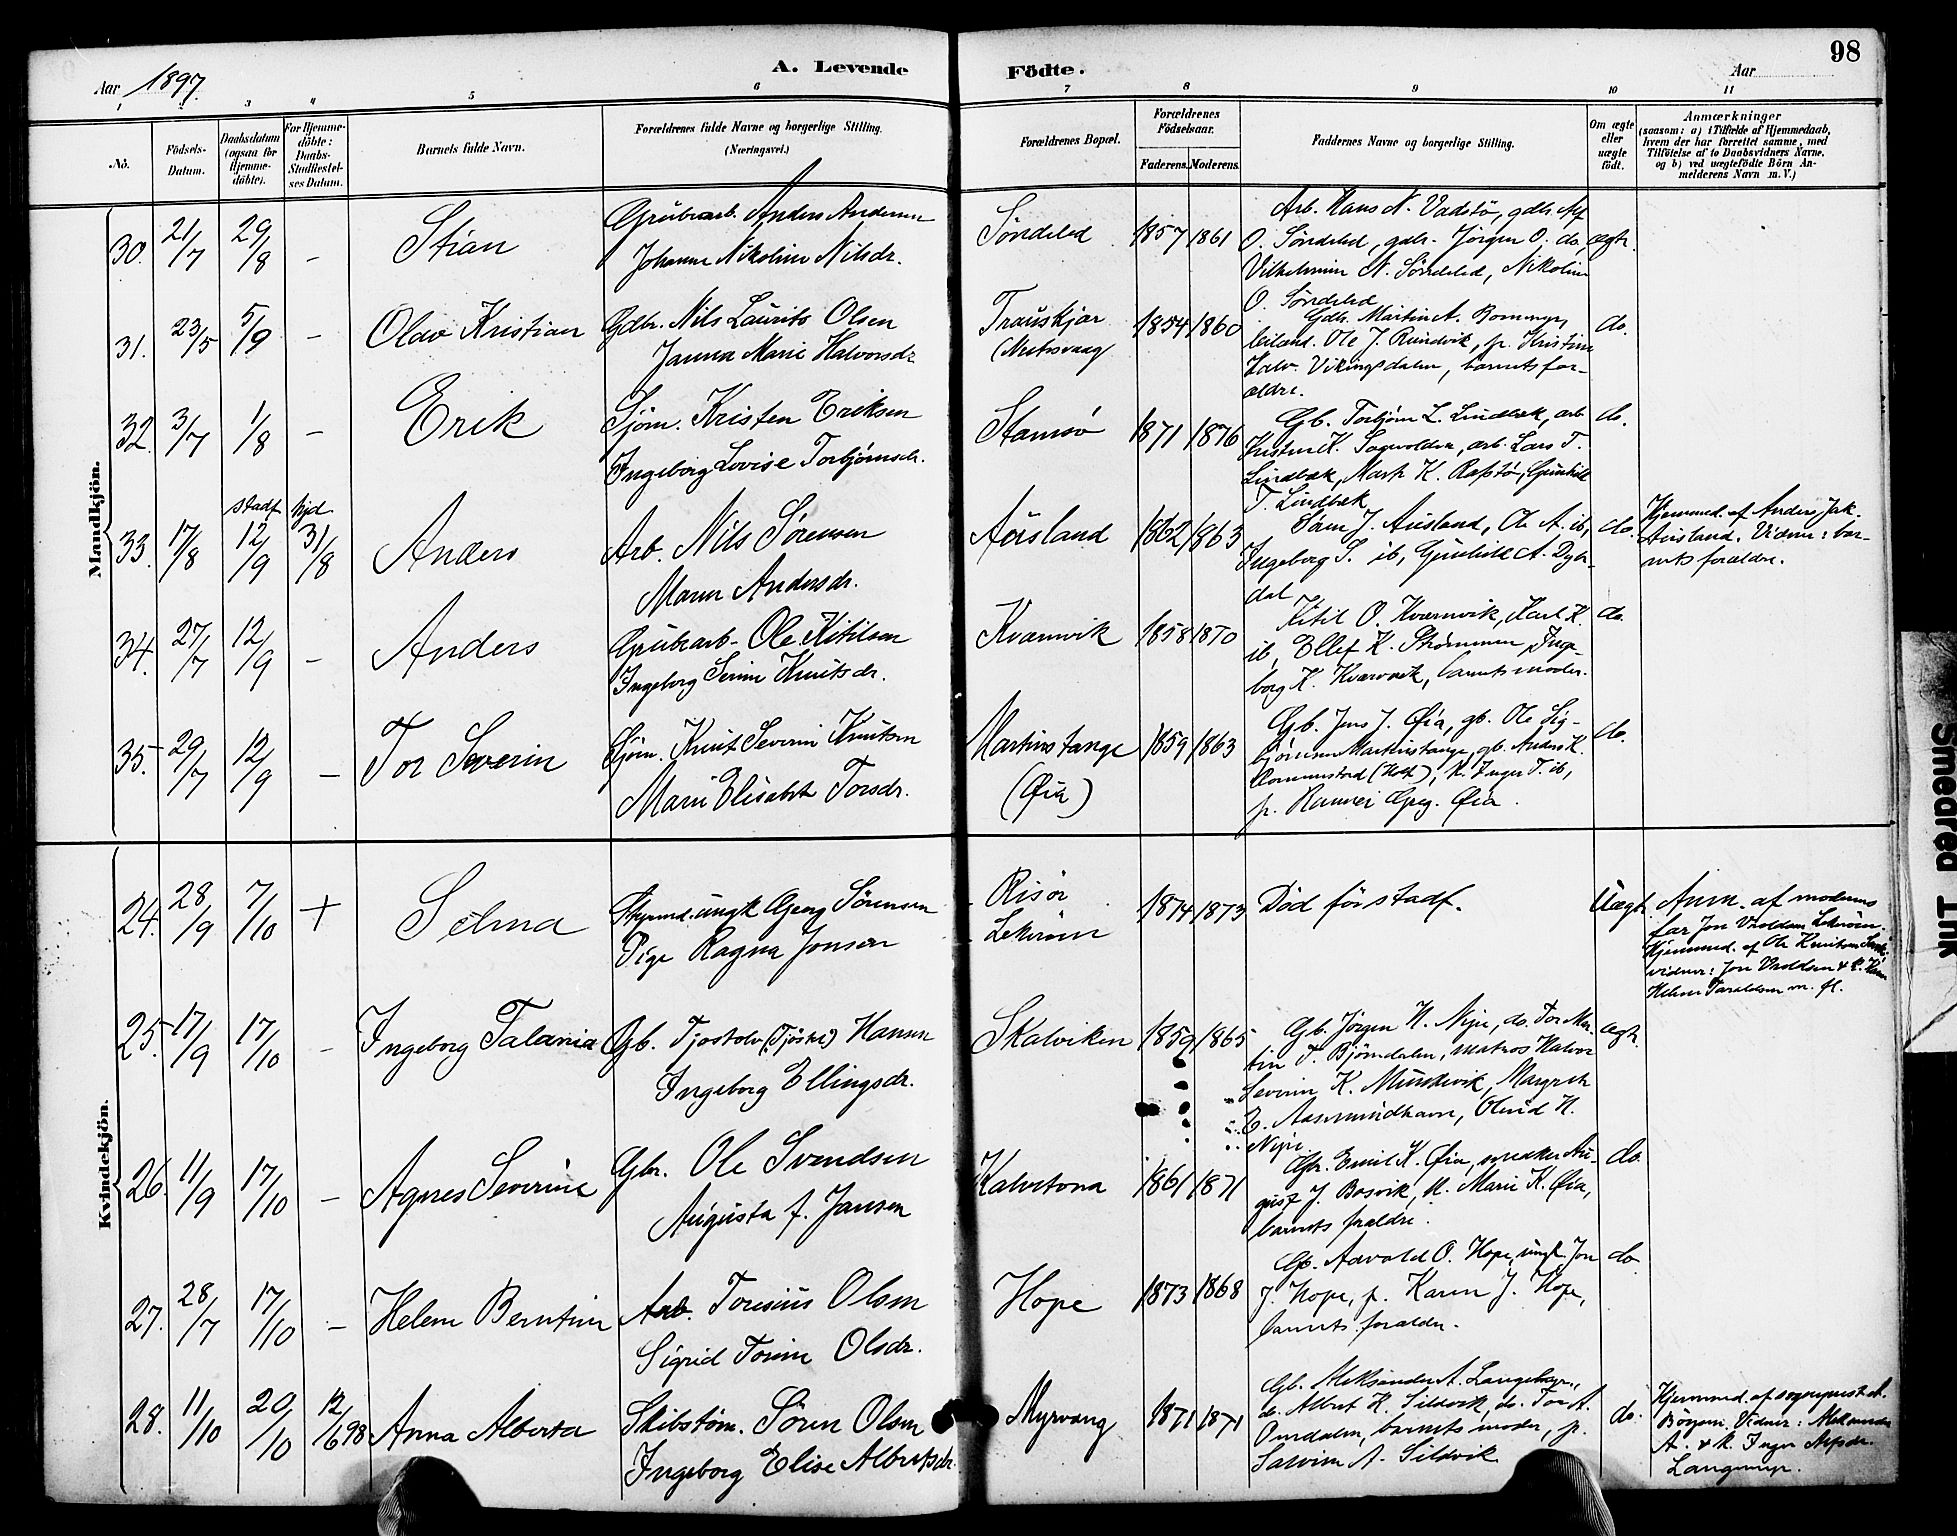 98
A. Levende Födte.
Aar 1897.
Aar
1 2 3 4 5 6 7 8 9 10 11
No.
Födsels-Datum.
Daabsdatum (ogsaa for Hjemme-döbte).
For Hjemme-döbte: Daabs-Stadfæstel-ses Datum.
Barnets fulde Navn.
Forældrenes fulde Navne og borgerlige Stilling.
(Næringsvei.)
Forældrenes Bopæl.
Forældrenes Födselsaar.
Faderens. Moderens.
Faddernes Navne og borgerlige Stilling.
Om ægte eller uægte födt.
Anmærkninger
(saasom: a) i Tilfælde af Hjemmedaab, hvem der har forrettet samme, med Tilföielse af to Daabsvidners Navne, og b) ved uægtefödte Börn An-melderens Navn m. V.)
Mandkjön.
30. 21/7 29/8 – Stian
Grubearb. Anders Andersen
Johanne Nikoline Nilsdr.
Söndeled 1857 1861
Arb. Hans N. Vadstö, gdbr.
O. Söndeled, gdbr. Jörgen O. do,
Vilhelmine N. Söndeled, Nikoline
O. Söndeled
ægte.
31. 23/5 5/9 – Olav Kristian
Gdbr. Nils Laurits Olsen
Janna Marie Halvorsdr.
1854 1860
Gdb. Martin A.
Ole J. Rundvik, p. Kristine
Halv. Vikingsdalen, barnets for-
ældre.
do.
32. 3/7 1/8 – Erik
Sjöm. Kristen Eriksen
Ingeborg Lovise Torbjörnsdr.
Stamsö 1871 1876
Gb. Torbjörn L. Lindbæk, arb.
arb. Lars T.
Lindbæk, Gunhild
T. Lindbæk
do.
33. 17/8 stadf. 12/9 hjd. 31/8 Anders
Arb. Nils Sörensen
Maren Andersdr.
Aüsland 1862 1863
J. Ausland, Ole A. ib,
Ingeborg S. ib, Gunhild A. Dyb-
dal
do.
Hjemmed. af Anders Jak.
Ausland. Vidner: bar-
nets forældre.
34. 27/7 12/9 – Anders
Grubearb. Ole Kitilsen
Ingeborg Serine Knutsdr.
Kvarnvik 1858 1870
Kitil O. Kværnvik, Karl K.
ib, Ellef K. Strömmen, Inge-
borg K. Kværnvik, barnets moder.
do.
35. 29/7 12/9 – Tor Severin
Sjöm. Knut Severin Knutsen
Marie Elisabet Torsdr.
Martinstange
(Öia)
1859 1863
Gb. Jens J. Öia, gb. Ole Sig-
björnsen Martinstange, gb. Anders K.
(Holt), K. Inger T. ib,
p. Greg. Öia.
do.
Kvindekjön.
24. 28/9 7/10 + Selma
Styrmd. ungk. Georg Sörensen
Pige Ragna Jonsen
Risör
1874 1873
Död för stadf.
Uægte
Anm. af moderens
far Jon
Hjemmed. af Ole Knutsen
vidner: Jon
Helene Taraldsen m. fl.
25. 17/9 17/10 – Ingeborg Talania
Gb. Tjostolv (Tjöstel) Hansen
Ingeborg Ellingsdr.
Skalviken 1859 1865
Gb. Jörgen N. do. Tor Mar-
tin T. Björndalen, matros Halvor
Severin K. Margrete
E. Aasmundhavn, Olevid N.
ægte.
26. 11/9 17/10 – Agnes Severine
Gbr. Ole Svendsen
Augusta f. Jansen
Kalvetona 1861 1871
Gbr. Emil K. Öia, snedker Au-
gust J. Bosvik, k. Marie K. Öia,
barnets forældre.
do.
27. 28/7 17/10 – Helene Berntine
Arb. Toresius Olsen
Sigrid Torine Olsdr.
Hope 1873 1868
Gb. Aavald O. Hope, ungk. Jon
J. Hope, p. Karen J. Hope,
barnets forældre.
do.
28. 11/10 20/10 12/6 98 Anna Alberta
Skibstöm. Sören Olsen
Ingeborg Elise Albretsdr.
Myrvang 1871 1871
Gb. Aleksander A.
do. Albret K. Sildvik, do. Tor A.
barnets moder, p.
A. Sildvik
do.
Hjemmed. af
Vidner: Aleksander
A. & k. Inger
Smeared Ink